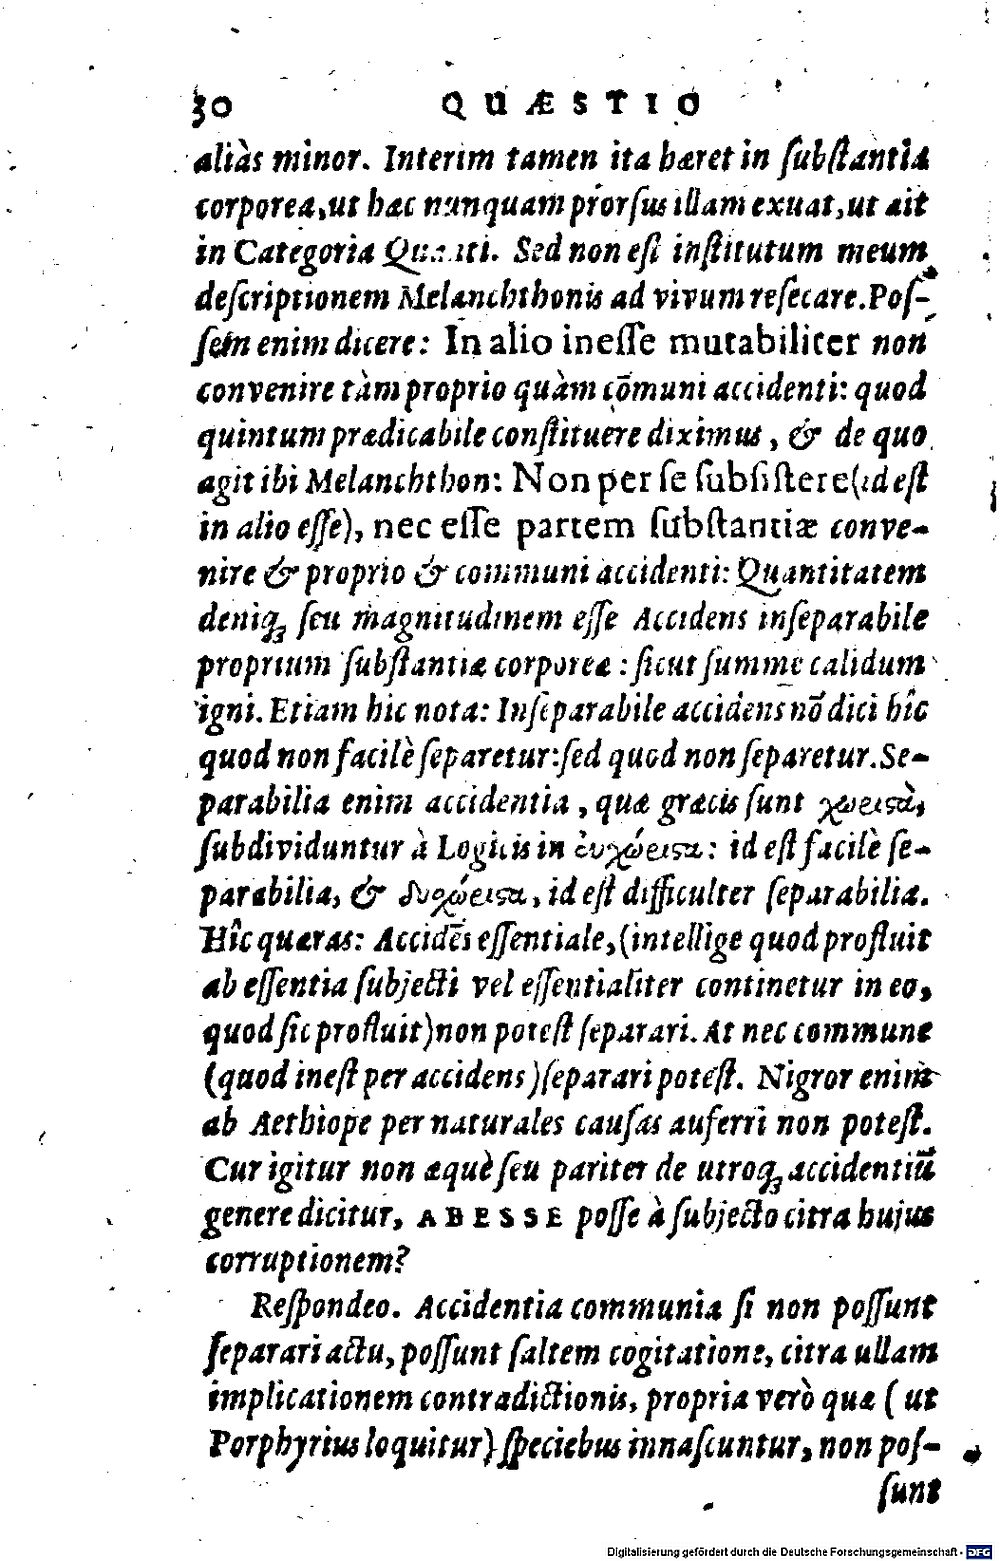 30 QUÆSTIO
aliàs minor. Interim tamen ita hæret in ſubſtantia
corporea, ut hæc nunquam prorſus illam exuat, ut ait
in Categoria Quanti. Sed non eſt inſtitutum meum
deſcriptionem Melanchthonis ad vivum reſecare. Poſ-
ſem enim dicere: In alio ineſſe mutabiliter non
convenire tàm proprio quàm cõmuni accidenti: quod
quintum prædicabile conſtituere diximus, & de quo
agit ibi Melanchthon: Non per ſe ſubſiſtere (id eſt
in alio eſſe), nec eſſe partem ſubſtantiæ conve-
nire & proprio & communi accidenti: Quantitatem
deniq; ſeu magnitudinem eſſe Accidens inſeparabile
proprium ſubſtantiæ corporeæ: ſicut ſumme calidum
igni. Etiam hic nota: Inſeparabile accidens nõ dici hîc
quod non facilè ſeparetur: ſed quod non ſeparetur. Se-
parabilia enim accidentia, quæ græcis ſunt χωριστὰ,
ſubdividuntur à Logicis in ἐυχώριστα: id eſt facilè ſe-
parabilia, & δυχώριστα, id eſt difficulter ſeparabilia.
Hîc quæras: Accidẽs eſſentiale, (intellige quod profluit
ab eſſentia ſubjecti vel eſſentialiter continetur in eo,
quod ſic profluit) non poteſt ſeparari. At nec commune
(quod ineſt per accidens) ſeparari poteſt. Nigror enim
ab Aethiope per naturales cauſas auferri non poteſt.
Cur igitur non æquè ſeu pariter de utroq; accidentiũ
genere dicitur, ABESSE poſſe à ſubjecto citra hujus
corruptionem?
Reſpondeo. Accidentia communia ſi non poſſunt
ſeparari actu, poſſunt ſaltem cogitatione, citra ullam
implicationem contradictionis, propria verò quæ (ut
Porphyrius loquitur) ſpeciebus innaſcuntur, non poſ-
ſunt
Digitalisierung gefördert durch die Deutsche Forschungsgemeinschaft - DFG